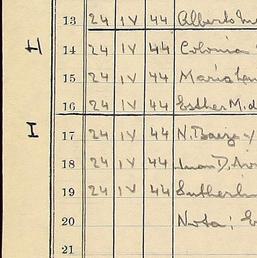 13 24 IV 44 Alberto
H 14 24 IV 44 Colonia
15 24 IV 44 Maria
16 24 IV 44 Esther M. d
I 17 24 IV 44 N. Baeza y
18 24 IV 44 Juan D.
19 24 IV 44
20 Nota:
21